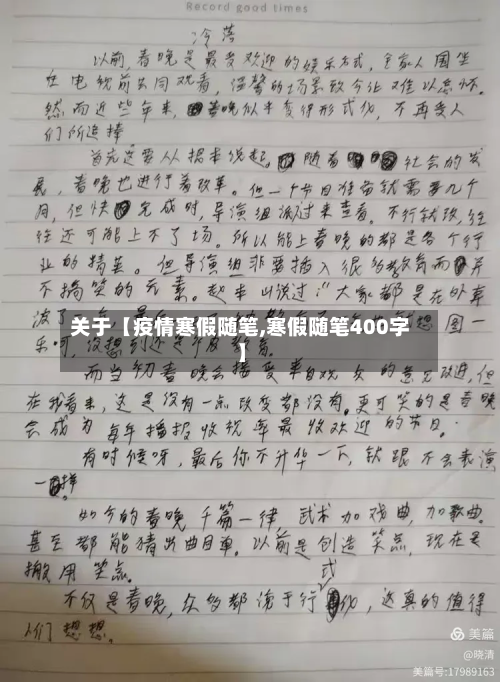 Record good times
冷落
以前，春晚是最受欢迎的娱乐方式，全家人围坐
在电视前共同观看，温馨的场景致今让人难以忘怀。
然而近些年来，春晚似乎变得形式化，不再受人
们所追捧
首先还要从根本说起。随着社会的发
展，春晚也进行着改革。但一个节目准备就需要几个
月，但快完成时，导演组派过来查看。不行就改，往
往还可能上不了场。所以能上春晚的都是各个行
业的精英。但导演组非要插入很多教育而并
不搞笑的元素。赵本山说过："大家都是在外奔
波了
关于【疫情寒假随笔,寒假随笔400字
】
图一
乐呵，没想到还是个度教育。
而当初春晚会接受来自观众的意见改进，但
在我看来，这是没有一点改变都没有。更可笑的是春晚
会成为每年播报收视率最收欢迎的节目。
有时候呀，最后你不升华一下，就跟不会表演
一样。
如今的春晚千篇一律，武术加戏曲，加歌曲。
甚至都能猜出曲目单。以前是创造笑点，现在是
搬用笑点。
不仅是春晚，众多都流于行式化，这真的值得
人们想想。
美篇
@晓清
美篇号:17989163